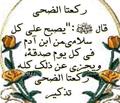 ركعتا الضحى
قال ﷺ :"يصبح على كل
سلامى من ابن آدم
في كل يوم صدقة،
ويجزى عن ذلك كله
ركعتا الضحى
تذكير